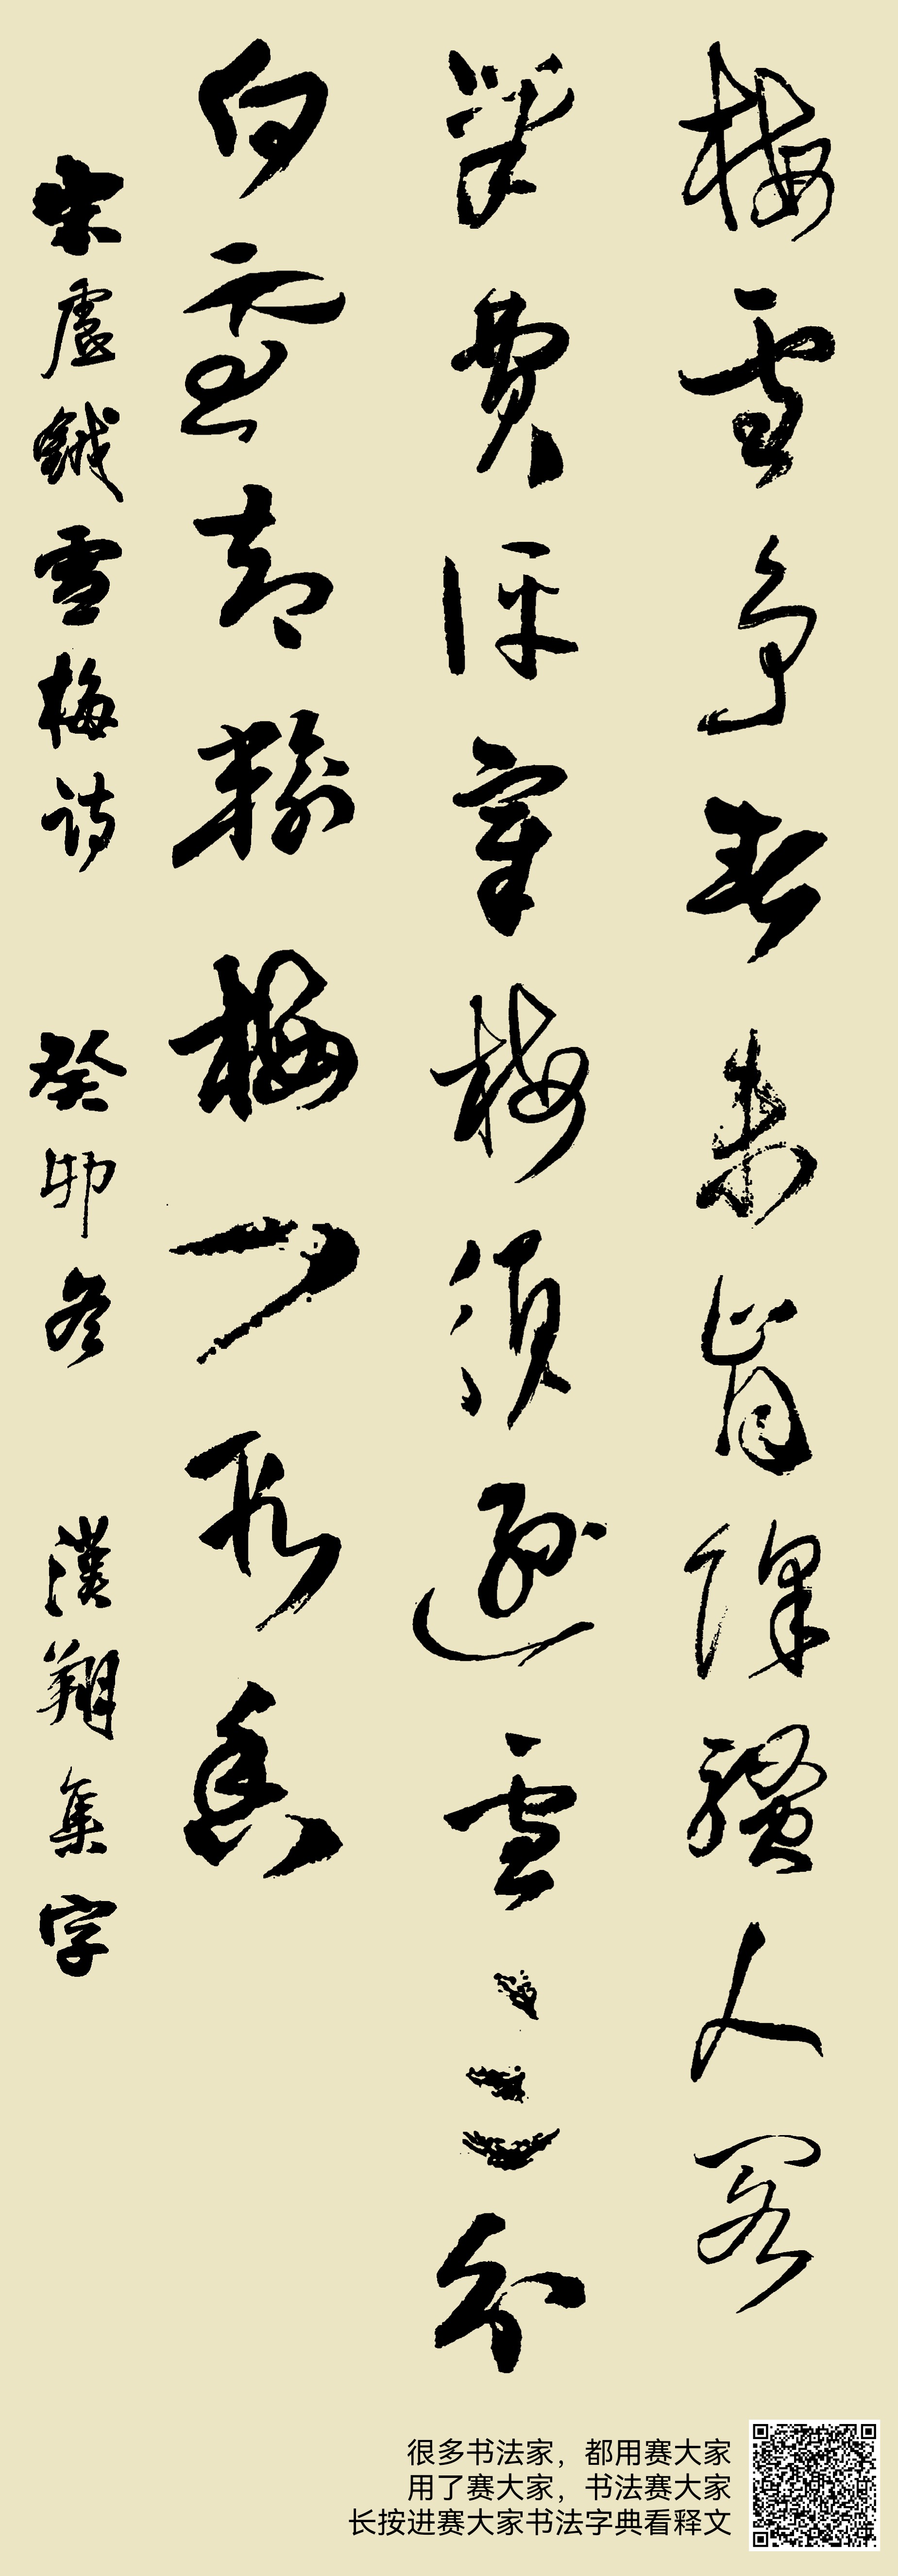 梅雪爭春未肯降騷人閣
筆費評章梅須遜雪三分
白雪却輸梅一段香
宋盧鉞雪梅詩 癸卯冬 漢翔集字
很多书法家，都用赛大家
用了赛大家，书法赛大家
长按进赛大家书法字典看释文